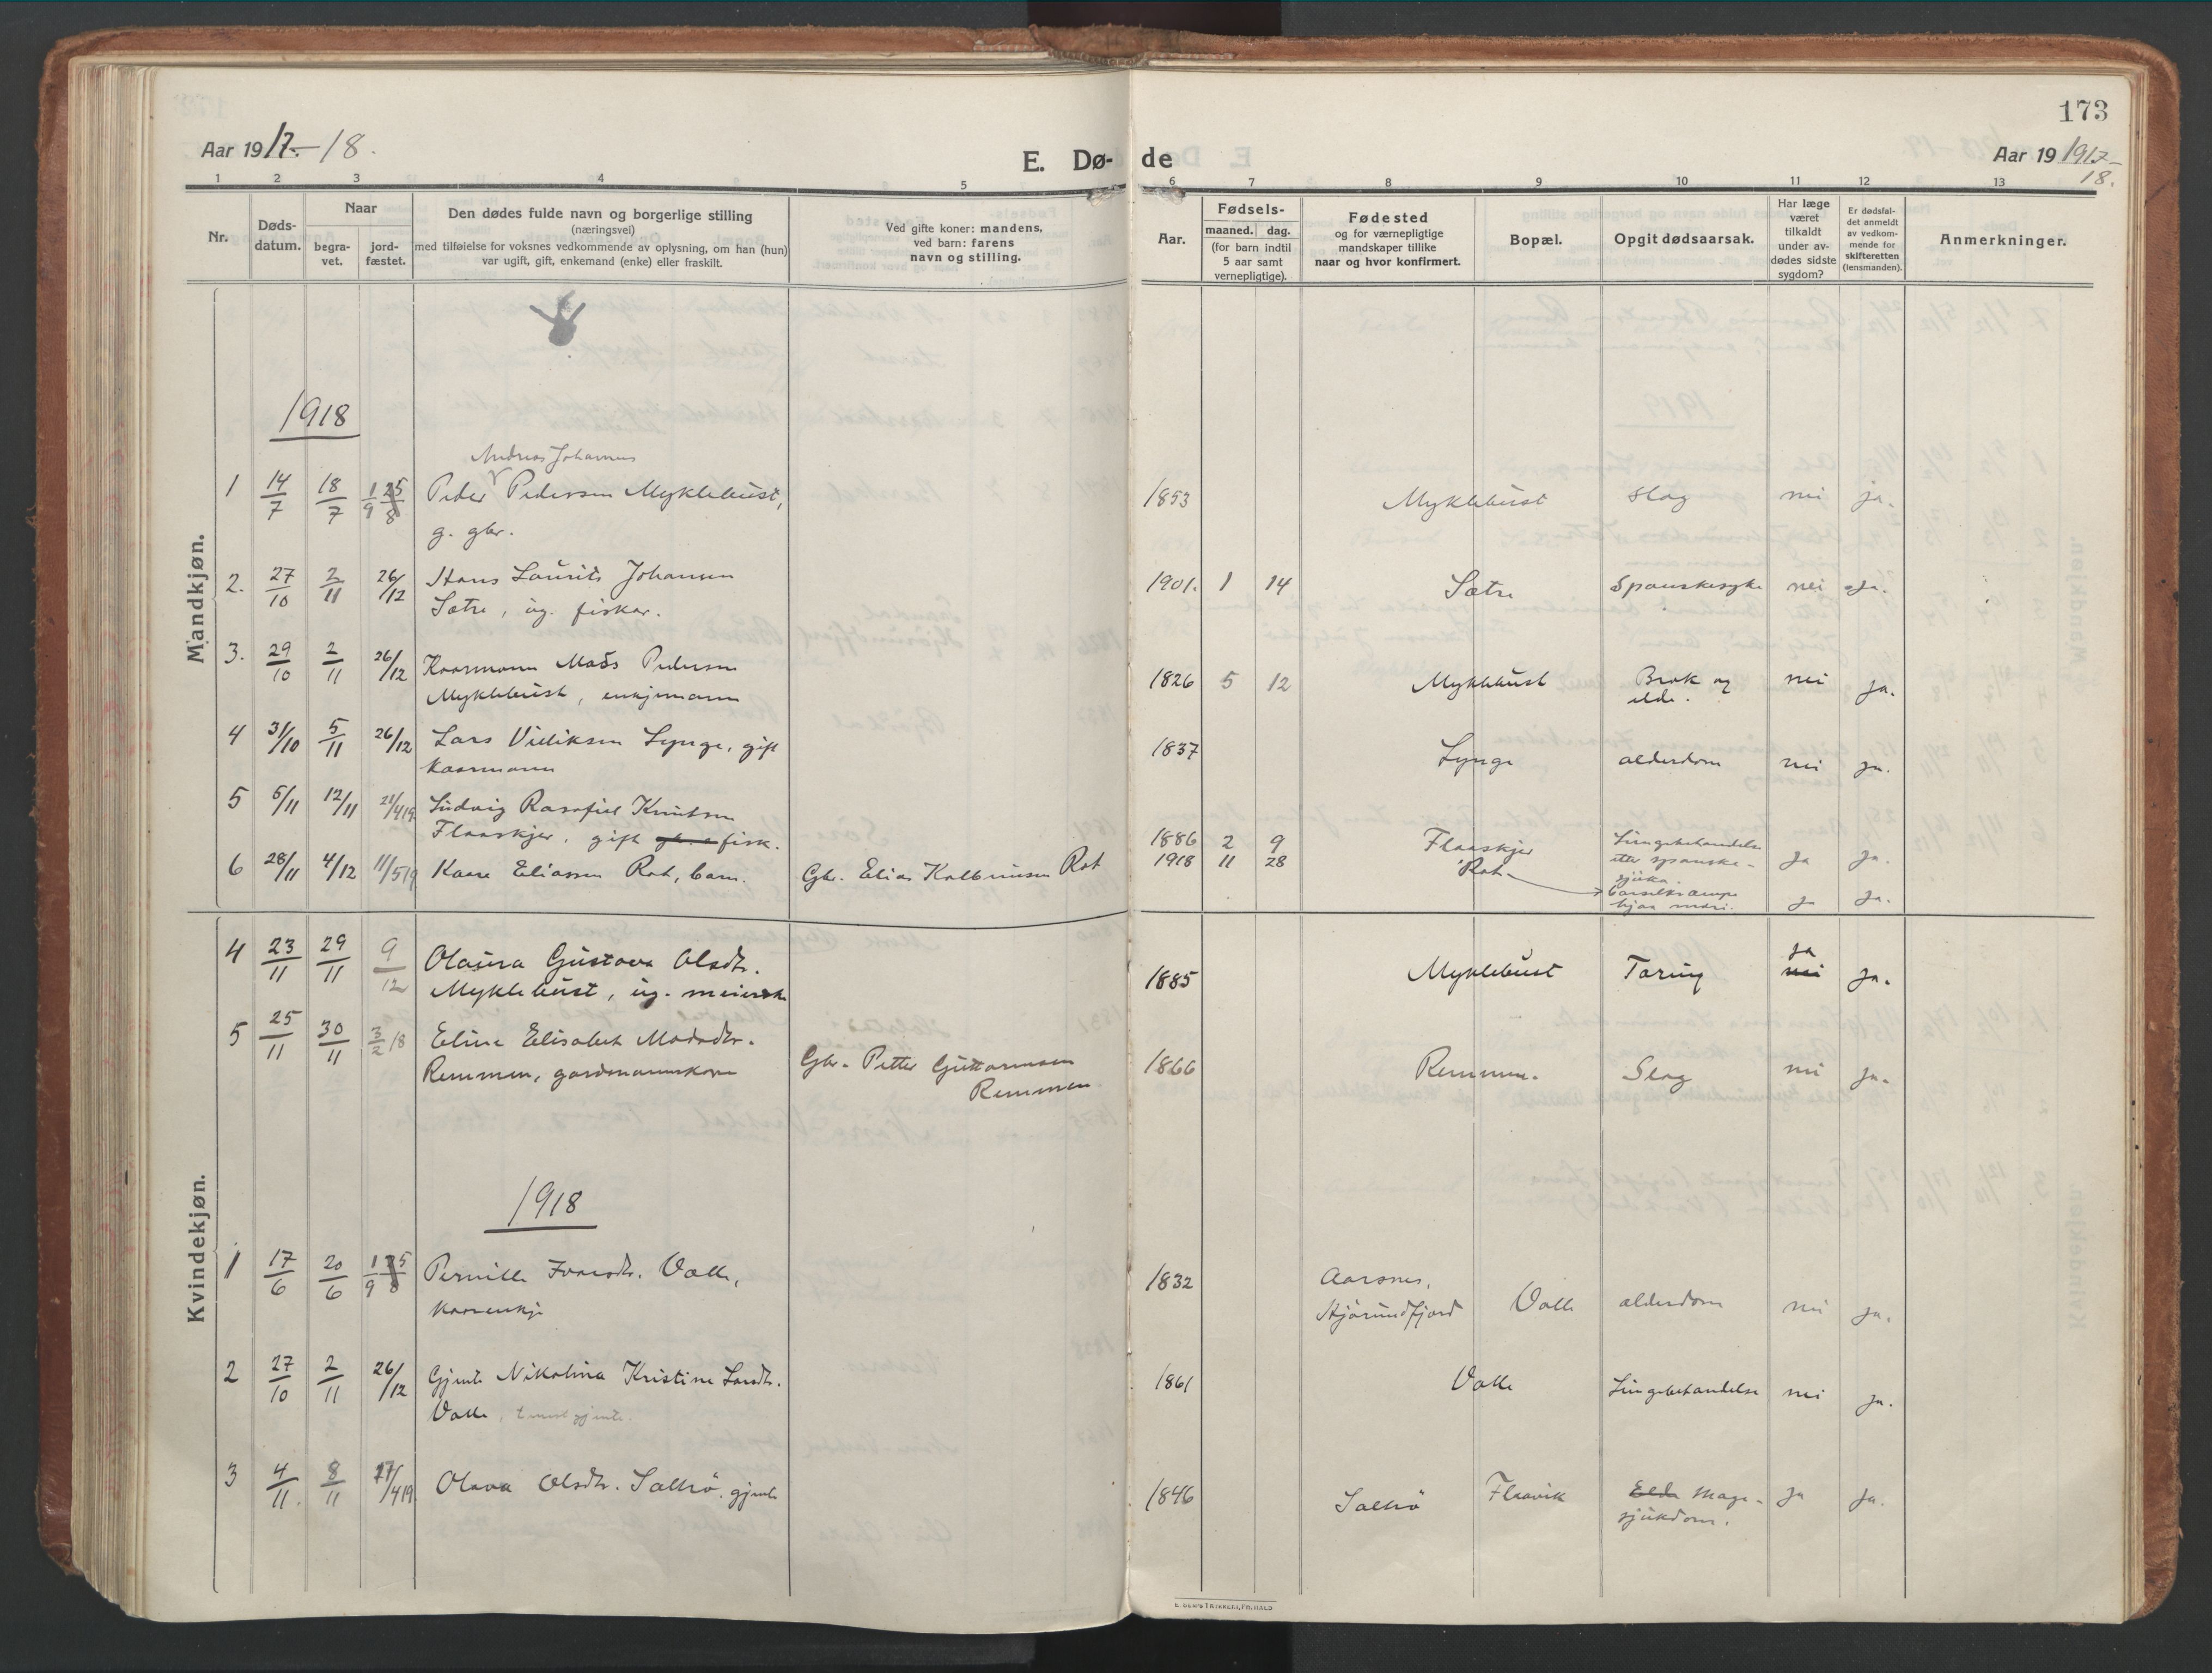 173
Aar 1917-18.
E. Dø- de
Aar 19 1917-
18.
1 2 3 4 5 6 7 8 9 10 11 12 13
Nr.
Døds-
datum.
Naar
begra-
vet.
jord-
fæstet.
Den dødes fulde navn og borgerlige stilling
(næringsvei)
med tilføielse for voksnes vedkommende av oplysning, om han (hun)
var ugift, gift, enkemand (enke) eller fraskilt.
Ved gifte koner: mandens,
ved barn: farens
navn og stilling.
Aar.
Fødsels-
maaned. dag.
(for barn indtil
5 aar samt
vernepligtige).
Fødested
og for værnepligtige
mandskaper tillike
naar og hvor konfirmert.
Bopæl.
Opgit dødsaarsak.
Har læge
været
tilkaldt
under av-
dødes sidste
sygdom?
Er dødsfal-
det anmeldt
av vedkom-
mende for
skifteretten
(lensmanden).
Anmerkninger.
Mandkjøn.
1918
Andreas Johannes
1 14/7 18/7 1/9 25/8 Peder Pedersen Myklebust, 1853 Myklebust Slag nei ja.
g. gbr.
2. 27/10 2/11 26/12 Hans Laurits Johansen 1901. 1 14 Sætre Spanskesyke nei Ja.
Sætre, ug. fisker.
3. 29/10 2/11 26/12 Kaarmann Mads Pedersen 1826 5 12 Myklebust Brok og nei ja.
Myklebust, enkjemann elde.
4 31/10 5/11 26/12 Lars Lynge, gift 1837 Lynge alderdom nei ja.
Kaarmann
5 5/11 12/11 21/4 19 Ludvig Knutsen
Flaaskjer, gift fisk. 1886 2 9 Flaaskjer Lungebetændelse
etter spanske-
sjuka. Ja Ja.
6 28/11 4/12 11/5 19 Kaare Eliassen Rot, barn. Gbr. Elias Kolbeinsen Rot 1918 11 28 Rot barselkrampe
hjaa mori. Ja Ja.
Kvindekjøn.
4 23/11 29/11 9/12 Olausa Gustava Olsdtr. 1885 Myklebust Tæring nei ja ja.
Myklebust, ug. meierske
5 25/11 30/11 3/2 18 Eline Elisabet Madsdtr. Gbr. Petter Guttormsen 1866 Remmen. Slag nei ja.
Remmen, gardmannskone Remmen
1918
1 17/6 20/6 1/9 25/8 Pernille Ivarsdtr. Valle, 1832 Aarsnes, Valle alderdom nei ja.
Kaarenkje Hjørundfjord
2 27/10 2/11 26/12 Gjente Nikolina Kristine Larsdtr. 1861 Valle Lungebetændelse nei ja.
Valle, tenestgjente.
3 4/11 8/11 27/4 19 Olava Olsdtr. Saltrö, gjente 1846 Saltrö Flaavik Elde Mage- Ja Ja.
sjukdom.